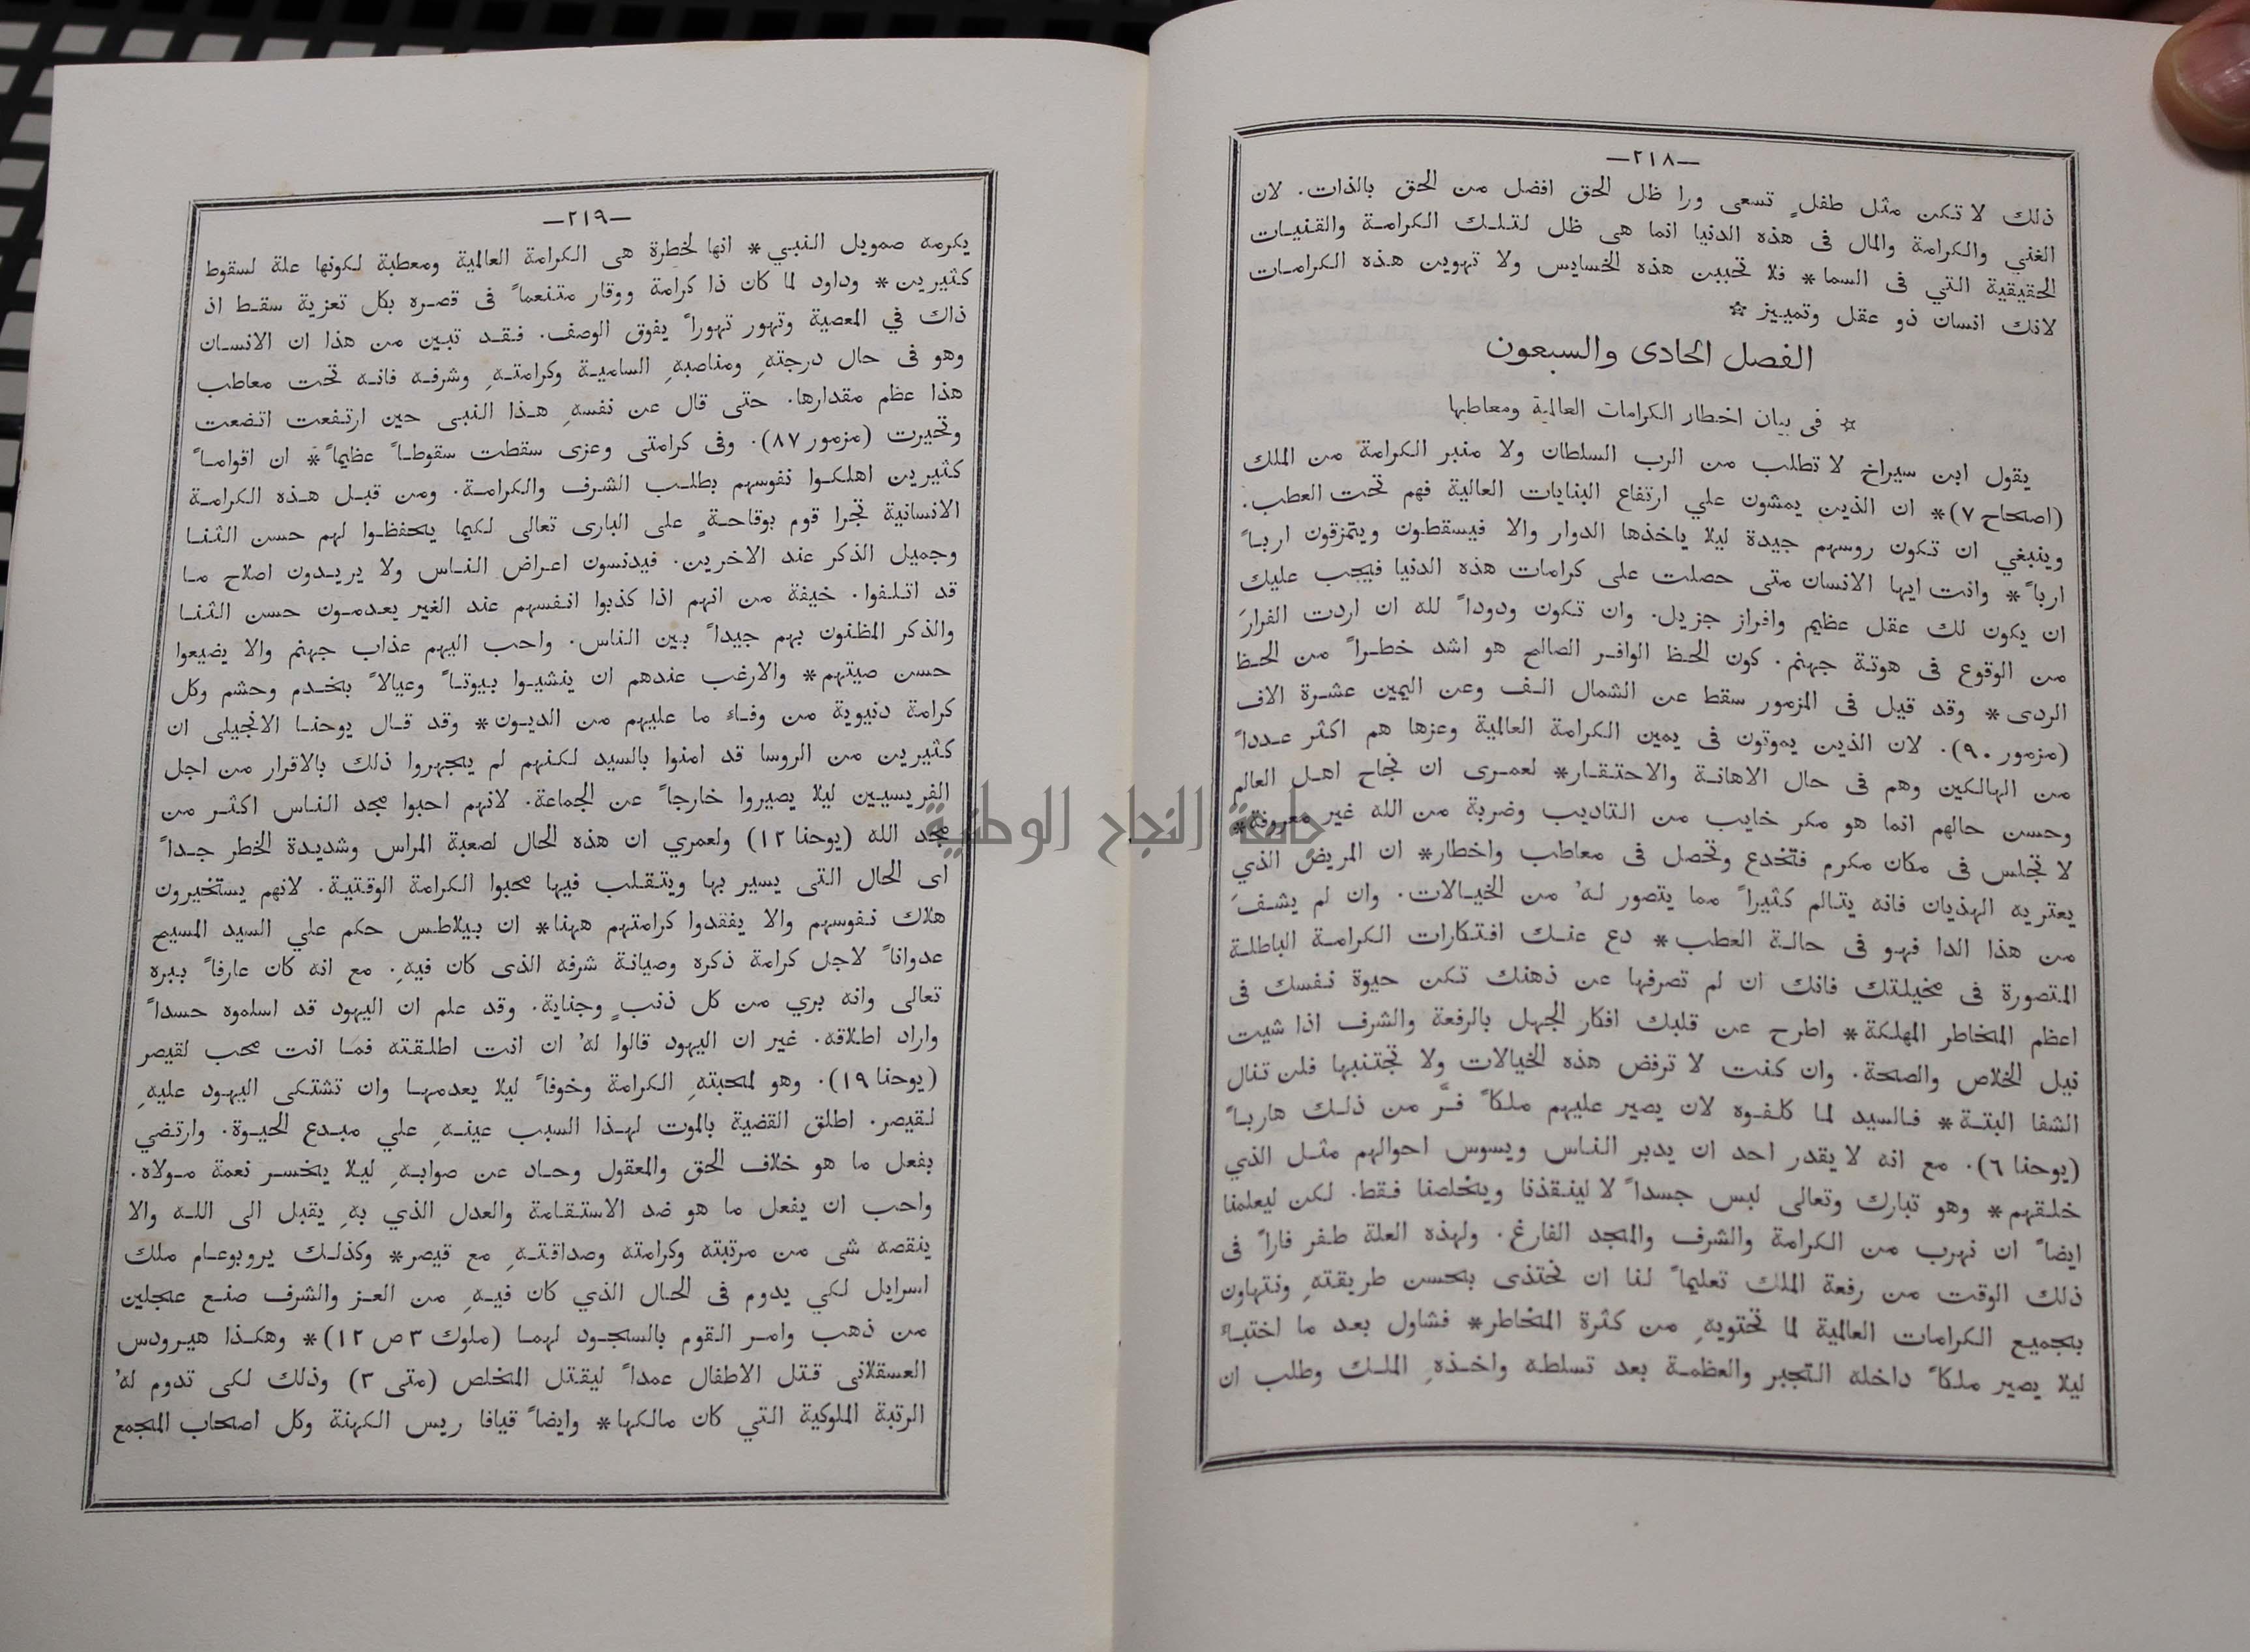 —٢١٨—
ذلك لا تكن مثل طفلٍ تسعى ورا ظل الحق افضل من الحق بالذات. لان
الغني والكرامة والمال فى هذه الدنيا انما هى ظل لتلك الكرامة والقنيات
الحقيقية التي فى السما* فلا تحببن هذه الخسايس ولا تهوين هذه الكرامات
لانك انسان ذو عقل وتمييز ☆
الفصل الحادى والسبعون
☆ فى بيان اخطار الكرامات العالمية ومعاطبها
يقول ابن سيراخ لا تطلب من الرب السلطان ولا منبر الكرامة من الملك
(اصحاح ٧)* ان الذين يمشون علي ارتفاع البنايات العالية فهم تحت العطب.
وينبغي ان تكون روسهم جيدة ليلا ياخذها الدوار والا فيسقطون ويتمزقون ارباً
ارباً* وانت ايها الانسان متى حصلت على كرامات هذه الدنيا فيجب عليك
ان يكون لك عقل عظيم وافراز جزيل. وان تكون ودوداً لله ان اردت الفرارَ
من الوقوع فى هوتة جهنم. كون الحظ الوافر الصالح هو اشد خطراً من الحظ
الردى* وقد قيل فى المزمور سقط عن الشمال الف وعن اليمين عشرة الاف
(مزمور ٩٠). لان الذين يموتون فى يمين الكرامة العالمية وعزها هم اكثر عدداً
من الهالكين وهم فى حال الاهانة والاحتقار* لعمرى ان نجاح اهل العالم
وحسن حالهم انما هو مكر خايب من التاديب وضربة من الله غير معروفة*
لا تجلس فى مكان مكرم فتخدع وتحصل فى معاطب واخطار* ان المريض الذي
يعتريه الهذيان فانه يتالم كثيراً مما يتصور لهُ من الخيالات. وان لم يشفَ
من هذا الدا فهو فى حالة العطب* دع عنك افتكارات الكرامة الباطلة
المتصورة فى مخيلتك فانك ان لم تصرفها عن ذهنك تكن حيوة نفسك فى
اعظم المخاطر المهلكة* اطرح عن قلبك افكار الجهل بالرفعة والشرف اذا شيت
نيل الخلاص والصحة. وان كنت لا ترفض هذه الخيالات ولا تجتنبها فلن تنال
الشفا البتة* فالسيد لما كلفوه لان يصير عليهم ملكاً فرَّ من ذلك هارباً
(يوحنا ٦). مع انه لا يقدر احد ان يدبر الناس ويسوس احوالهم مثل الذي
خلقهم* وهو تبارك وتعالى لبس جسداً لا لينقذنا ويخلصنا فقط. لكن ليعلمنا
ايضاً ان نهرب من الكرامة والشرف والمجد الفارغ. ولهذه العلة طفر فاراً فى
ذلك الوقت من رفعة الملك تعليماً لنا ان نحتذى بحسن طريقتهِ ونتهاون
بجميع الكرامات العالمية لما تحتويهِ من كثرة المخاطر* فشاول بعد ما اختباء
ليلا يصير ملكاً داخله التجبر والعظمة بعد تسلطه واخذهِ الملك وطلب ان
—٢١٩—
يكرمه صمويل النبي* انها لخطرة هى الكرامة العالمية ومعطبة لكونها علة لسقوط
كثيرين* وداود لما كان ذا كرامة ووقار متنعماً فى قصره بكل تعزية سقط اذ
ذاك في المعصية وتهور تهوراً يفوق الوصف. فقد تبين من هذا ان الانسان
وهو فى حال درجتهِ ومناصبهِ السامية وكرامتهِ وشرفه فانه تحت معاطب
هذا عظم مقدارها. حتى قال عن نفسهِ هذا النبى حين ارتفعت اتضعت
وتحيرت (مزمور ٨٧). وفى كرامتى وعزى سقطت سقوطاً عظيماً* ان اقواماً
كثيرين اهلكوا نفوسهم بطلب الشرف والكرامة. ومن قبل هذه الكرامة
الانسانية تجرا قوم بوقاحةٍ على البارى تعالى لكيما يحفظوا لهم حسن الثنا
وجميل الذكر عند الاخرين. فيدنسون اعراض الناس ولا يريدون اصلاح ما
قد اتلفوا. خيفة من انهم اذا كذبوا انفسهم عند الغير يعدمون حسن الثنا
والذكر المظنون بهم جيداً بين الناس. واحب اليهم عذاب جهنم والا يضيعوا
حسن صيتهم* والارغب عندهم ان ينشيوا بيوتاً وعيالاً بخدم وحشم وكل
كرامة دنيوية من وفاء ما عليهم من الديون* وقد قال يوحنا الانجيلى ان
كثيرين من الروسا قد امنوا بالسيد لكنهم لم يجهروا ذلك بالاقرار من اجل
الفريسيين ليلا يصيروا خارجاً عن الجماعة. لانهم احبوا مجد الناس اكثر من
مجد الله (يوحنا ١٢) ولعمري ان هذه الحال لصعبة المراس وشديدة الخطر جداً
اى الحال التى يسير بها ويتقلب فيها محبوا الكرامة الوقتية. لانهم يستخيرون
هلاك نفوسهم والا يفقدوا كرامتهم ههنا* ان بيلاطس حكم علي السيد المسيح
عدواناً لاجل كرامة ذكره وصيانة شرفه الذى كان فيهِ. مع انه كان عارفاً ببره
تعالى وانه بري من كل ذنبٍ وجناية. وقد علم ان اليهود قد اسلموه حسداً
واراد اطلاقه. غير ان اليهود قالوا لهُ ان انت اطلقته فما انت محب لقيصر
(يوحنا ١٩). وهو لمحبتهِ الكرامة وخوفاً ليلا يعدمها وان تشتكى اليهود عليهِ
لقيصر. اطلق القضية بالموت لهذا السبب عينهِ علي مبدع الحيوة. وارتضي
بفعل ما هو خلاف الحق والمعقول وحاد عن صوابهِ ليلا يخسر نعمة مولاه.
واحب ان يفعل ما هو ضد الاستقامة والعدل الذي بهِ يقبل الى الله والا
ينقصه شى من مرتبته وكرامته وصداقتهِ مع قيصر* وكذلك يروبوعام ملك
اسرايل لكي يدوم فى الحال الذي كان فيهِ من العز والشرف صنع عجلين
من ذهب وامر القوم بالسجود لهما (ملوك ٣ ص ١٢)* وهكذا هيرودس
العسقلانى قتل الاطفال عمداً ليقتل المخلص (متى ٢) وذلك لكى تدوم لهُ
الرتبة الملوكية التي كان مالكها* وايضاً قيافا ريس الكهنة وكل اصحاب المجمع
جامعة النجاح الوطنية